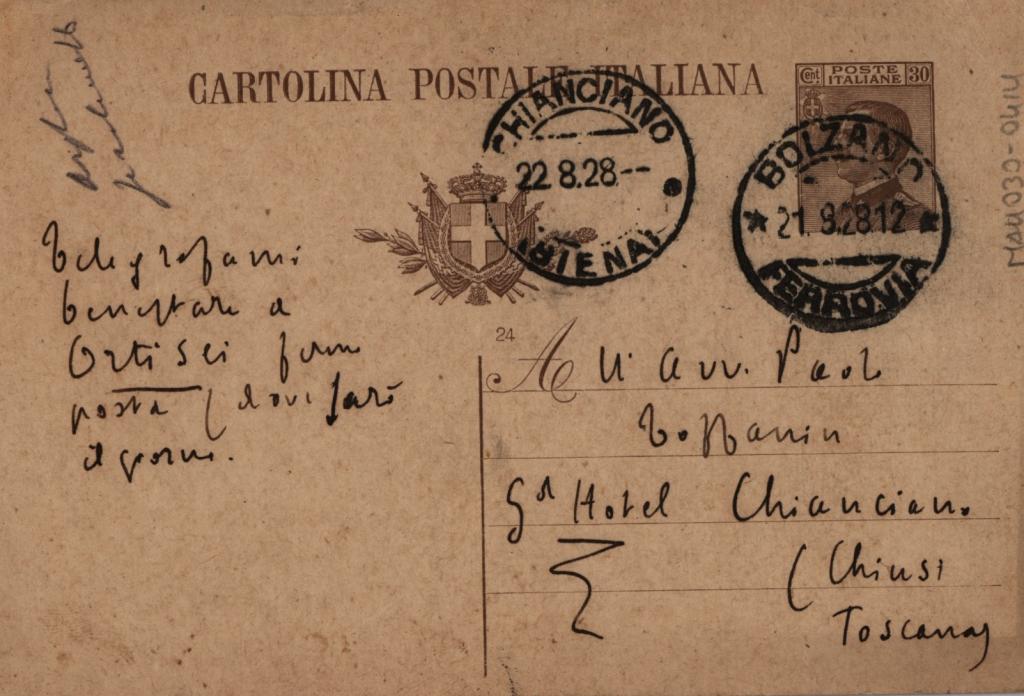 CARTOLINA POSTALE ITALIANA
Cent. POSTE ITALIANE 30
CHIANCIANO
22.8.28
(SIENA)
BOLZANO
21.8.28 12
FERROVIA
MAU030-0414
Telegrafami
benestare a
Ortisei fermo
posta (dove sarò
il giorno.
24
All' Avv. Paolo
Toffanin
Gd Hotel Chianciano
(Chiusi
Toscana)